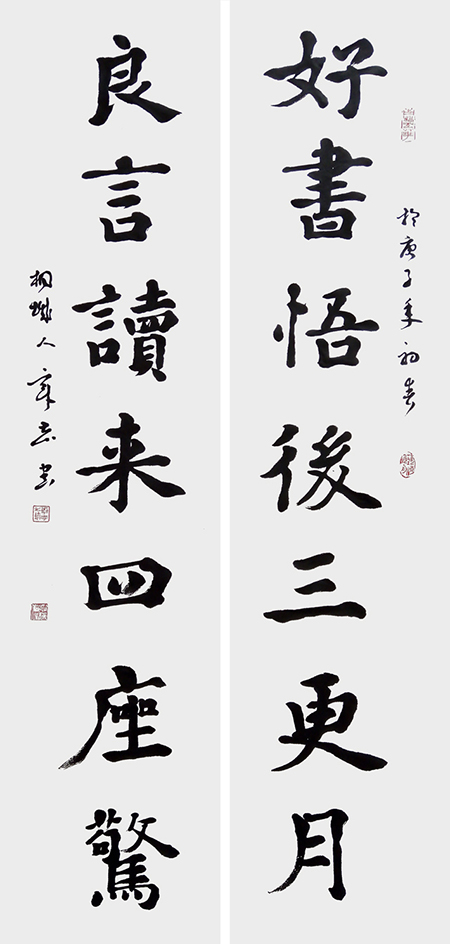 好書悟後三更月
於庚子年初春
良言讀来四座驚
桐城人章志書